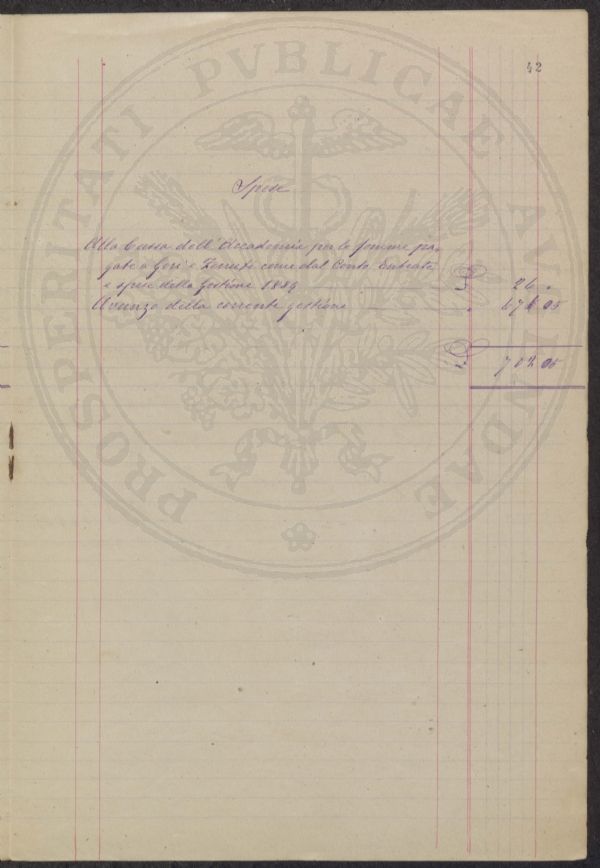 42
PROSPERITATI PVBLICAE AVGENDAE
Spese
Alla Cassa dell'Accademia per le somme pa-
gate a Gori e come dal Conto Entrata
e spese della Gestione 1889 £ 26 "
Avanzo della corrente gestione " 05
£ 05